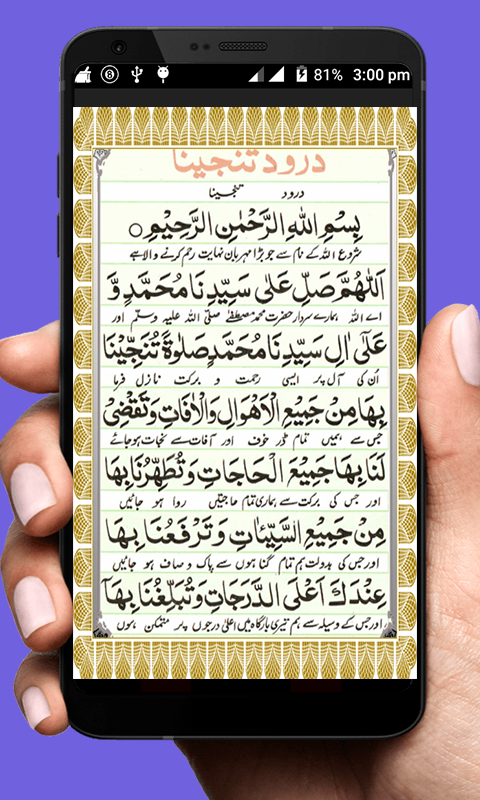 81% 3:00 pm
درود تنجینا
درود تنجینا
بِسْمِ اللهِ الرَّحْمٰنِ الرَّحِيْمِ ○
شروع اللہ کے نام سے جو بڑا مہربان نہایت رحم کرنے والا ہے
اَللّٰهُمَّ صَلِّ عَلٰى سَيِّدِنَا مُحَمَّدٍ وَّ
اے اللہ ہمارے سردار حضرت محمد مصطفےٰ صلی اللہ علیہ وسلم اور
عَلٰٓى اٰلِ سَيِّدِنَا مُحَمَّدٍ صَلٰوةً تُنَجِّيْنَا
اُن کی آل پر ایسی رحمت و برکت نازل فرما
بِهَا مِنْ جَمِيْعِ الْاَهْوَالِ وَالْاٰفَاتِ وَتَقْضِىْ
جس سے ہمیں تمام ڈر خوف اور آفات سے نجات ہوجائے
لَنَا بِهَا جَمِيْعَ الْحَاجَاتِ وَتُطَهِّرُنَا بِهَا
اور جس کی برکت سے ہماری تمام حاجتیں روا ہو جائیں
مِنْ جَمِيْعِ السَّيِّاٰتِ وَتَرْفَعُنَا بِهَا
اور جس کی بدولت ہم تمام گناہوں سے پاک و صاف ہو جائیں
عِنْدَكَ اَعْلَى الدَّرَجَاتِ وَتُبَلِّغُنَا بِهَآ
اور جس کے وسیلہ سے ہم تیری بارگاہ میں اعلیٰ درجوں پر متمکن ہوں